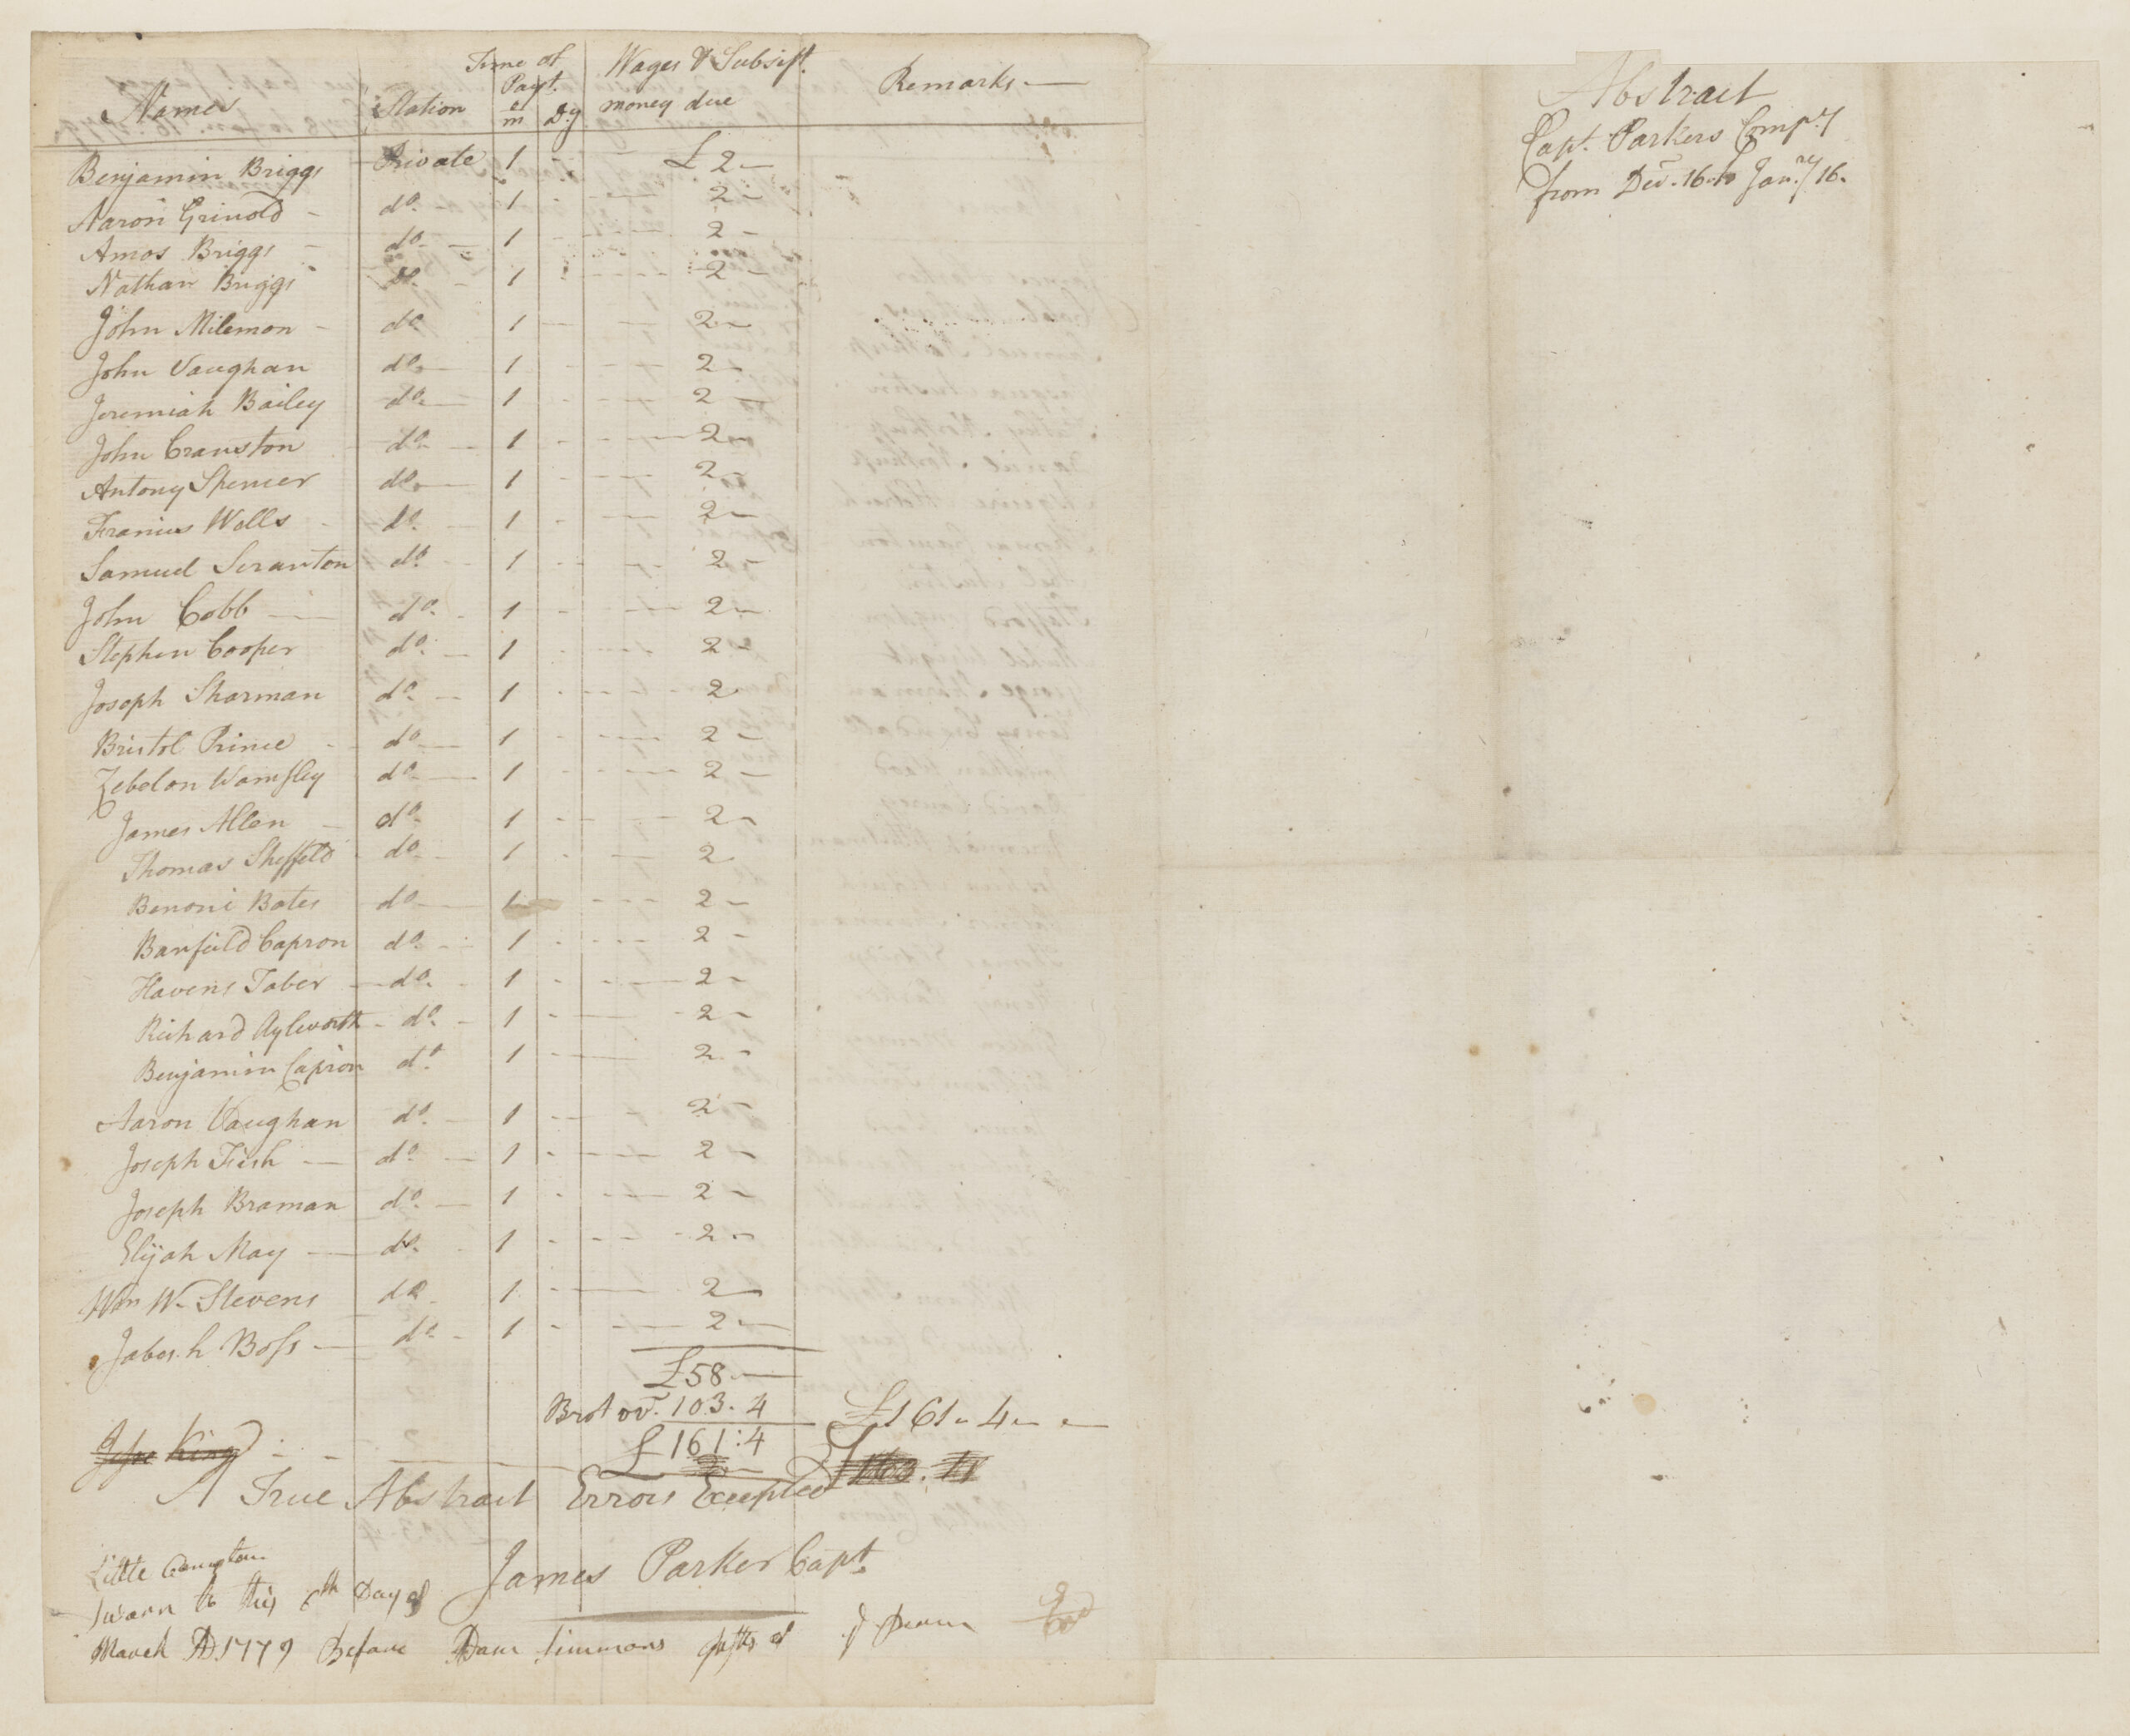 Names Station Time of Payt. m Dy Wages & Subsist. money due Remarks —
Benjamin Briggs Private 1 £ 2 —
Aaron Grinold - do. 1 2 —
Amos Briggs - do. 1 2 —
Nathan Briggs do. 1 2 —
John Milemon - do 1 2 —
John Vaughan do. 1 2 —
Jeremiah Bailey do. 1 2 —
John Cranston do. 1 2 —
Antony Spencer do. 1 2 —
Francis Wells do. 1 2 —
Samuel Scranton do. 1 2 —
John Cobb — do. 1 2 —
Stephen Cooper do. 1 2 —
Joseph Sharman do. 1 2
Bristol Prince do. 1 2 —
Zebelon Wamsley do. 1 2 —
James Allen do. 1 2 —
Thomas Sheffeld do. 1 2
Benoni Bates do. 1 2 —
Banfield Capron do. 1 2 —
Havens Taber do. 1 2 —
Richard Aylworth do. 1 2 —
Benjamin Capron do. 1 2 —
Aaron Vaughan do. 1 2 —
Joseph Fish — do. 1 2 —
Joseph Braman do. 1 2 —
Elijah May — do. 1 2 —
Wm W. Stevens do. 1 2 —
Jabesh Boss — do. 1 2 —
£58 —
Brot ov. 103. 4 £161 „ 4 „ —
£161:4
King
A True Abstract Errors Excepted
James Parker Capt.
Little Compton
Sworn to this 6th Day of
March AD 1779 Before Adam Simmons
Abstract
Capt. Parkers Compy
from Dec. 16 to Janry 16.